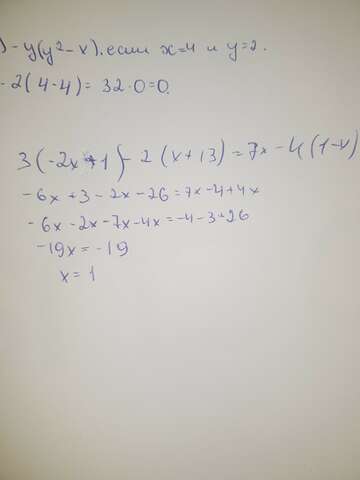 ) - y(y² - x). если x=4 и y=2.
- 2(4-4) = 32·0=0.
3(-2x+1) - 2(x+13) = 7x - 4(1-x)
-6x+3-2x-26=7x-4+4x
-6x-2x-7x-4x=-4-3+26
-19x=-19
x=1